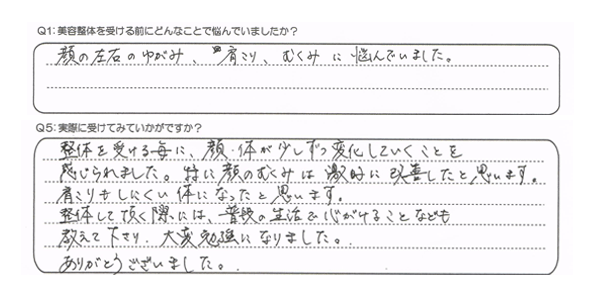 Q1:美容整体を受ける前にどんなことで悩んでいましたか?
顔の左右のゆがみ、肩こり、むくみに悩んでいました。
Q5:実際に受けてみていかがですか?
整体を受ける毎に、顔・体が少しずつ変化していくことを
感じられました。特に顔のむくみは激的に改善したと思います。
肩こりもしにくい体になったと思います。
整体して頂く際には、普段の生活で心がけることなども
教えて下さり、大変勉強になりました。
ありがとうございました。